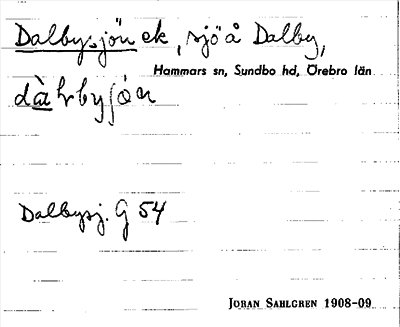 Dalbysjön ek, sjö å Dalby,
Hammars sn, Sundbo hd, Örebro län
Dalbysj. G 54
JORAN SAHLGREN 1908-09